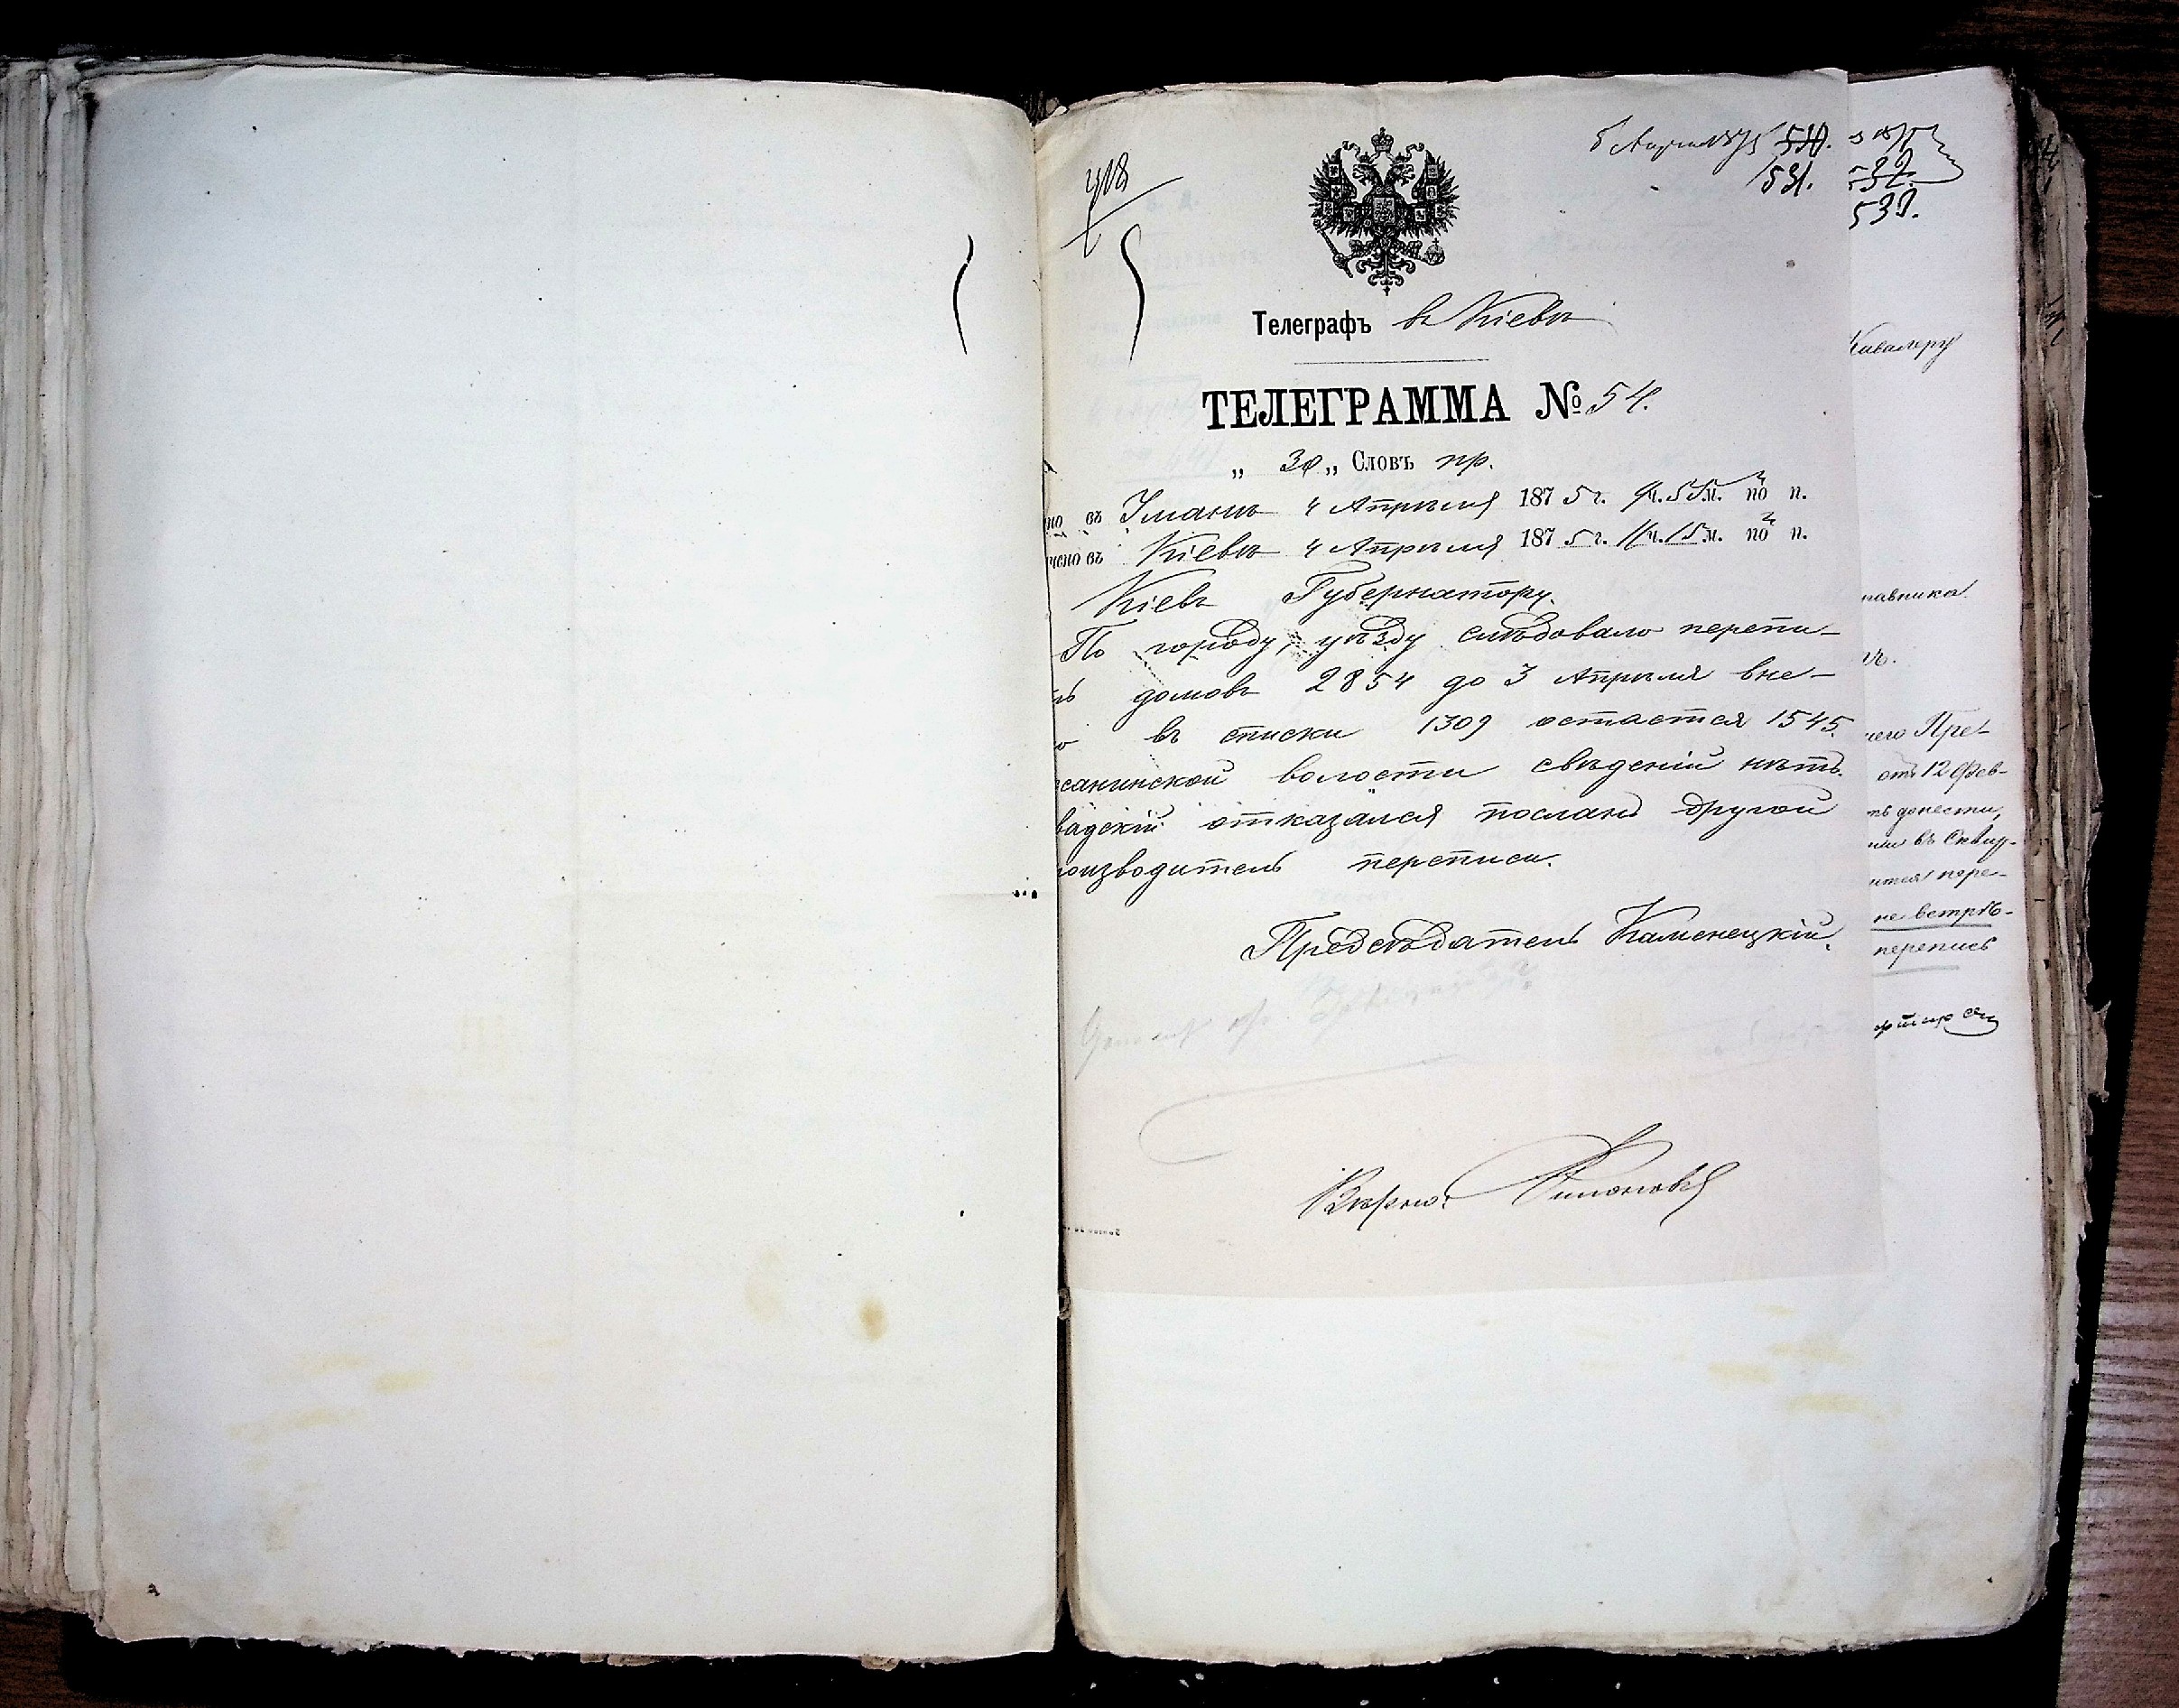 5 Апреля 1875 530.
531.
Телеграфъ въ Кіевѣ
ТЕЛЕГРАММА № 54.
„ 30 „ Словъ пр.
но въ Умани 4 Апрѣля 1875 г. 9ч. 55м. по п.
чено въ Кіевѣ 4 Апрѣля 1875 г. 11ч. 15м. по п.
Кіевъ Губернатору.
По городу, уѣзду слѣдовало перепи-
ть домовъ 2854 до 3 Апрѣля вне-
о въ списки 1309 остается 1545.
санинской волости свѣденій нѣтъ.
вадскій отказался посланъ другой
оизводитель переписи.
Предсѣдатель Каменецкій.
Вѣрно:
532.
539.
Кавалеру
равника
чъ.
чего Пре-
отъ 12 Фев-
ть донести,
или въ Сквир-
ится пере-
не встрѣ-
перепись